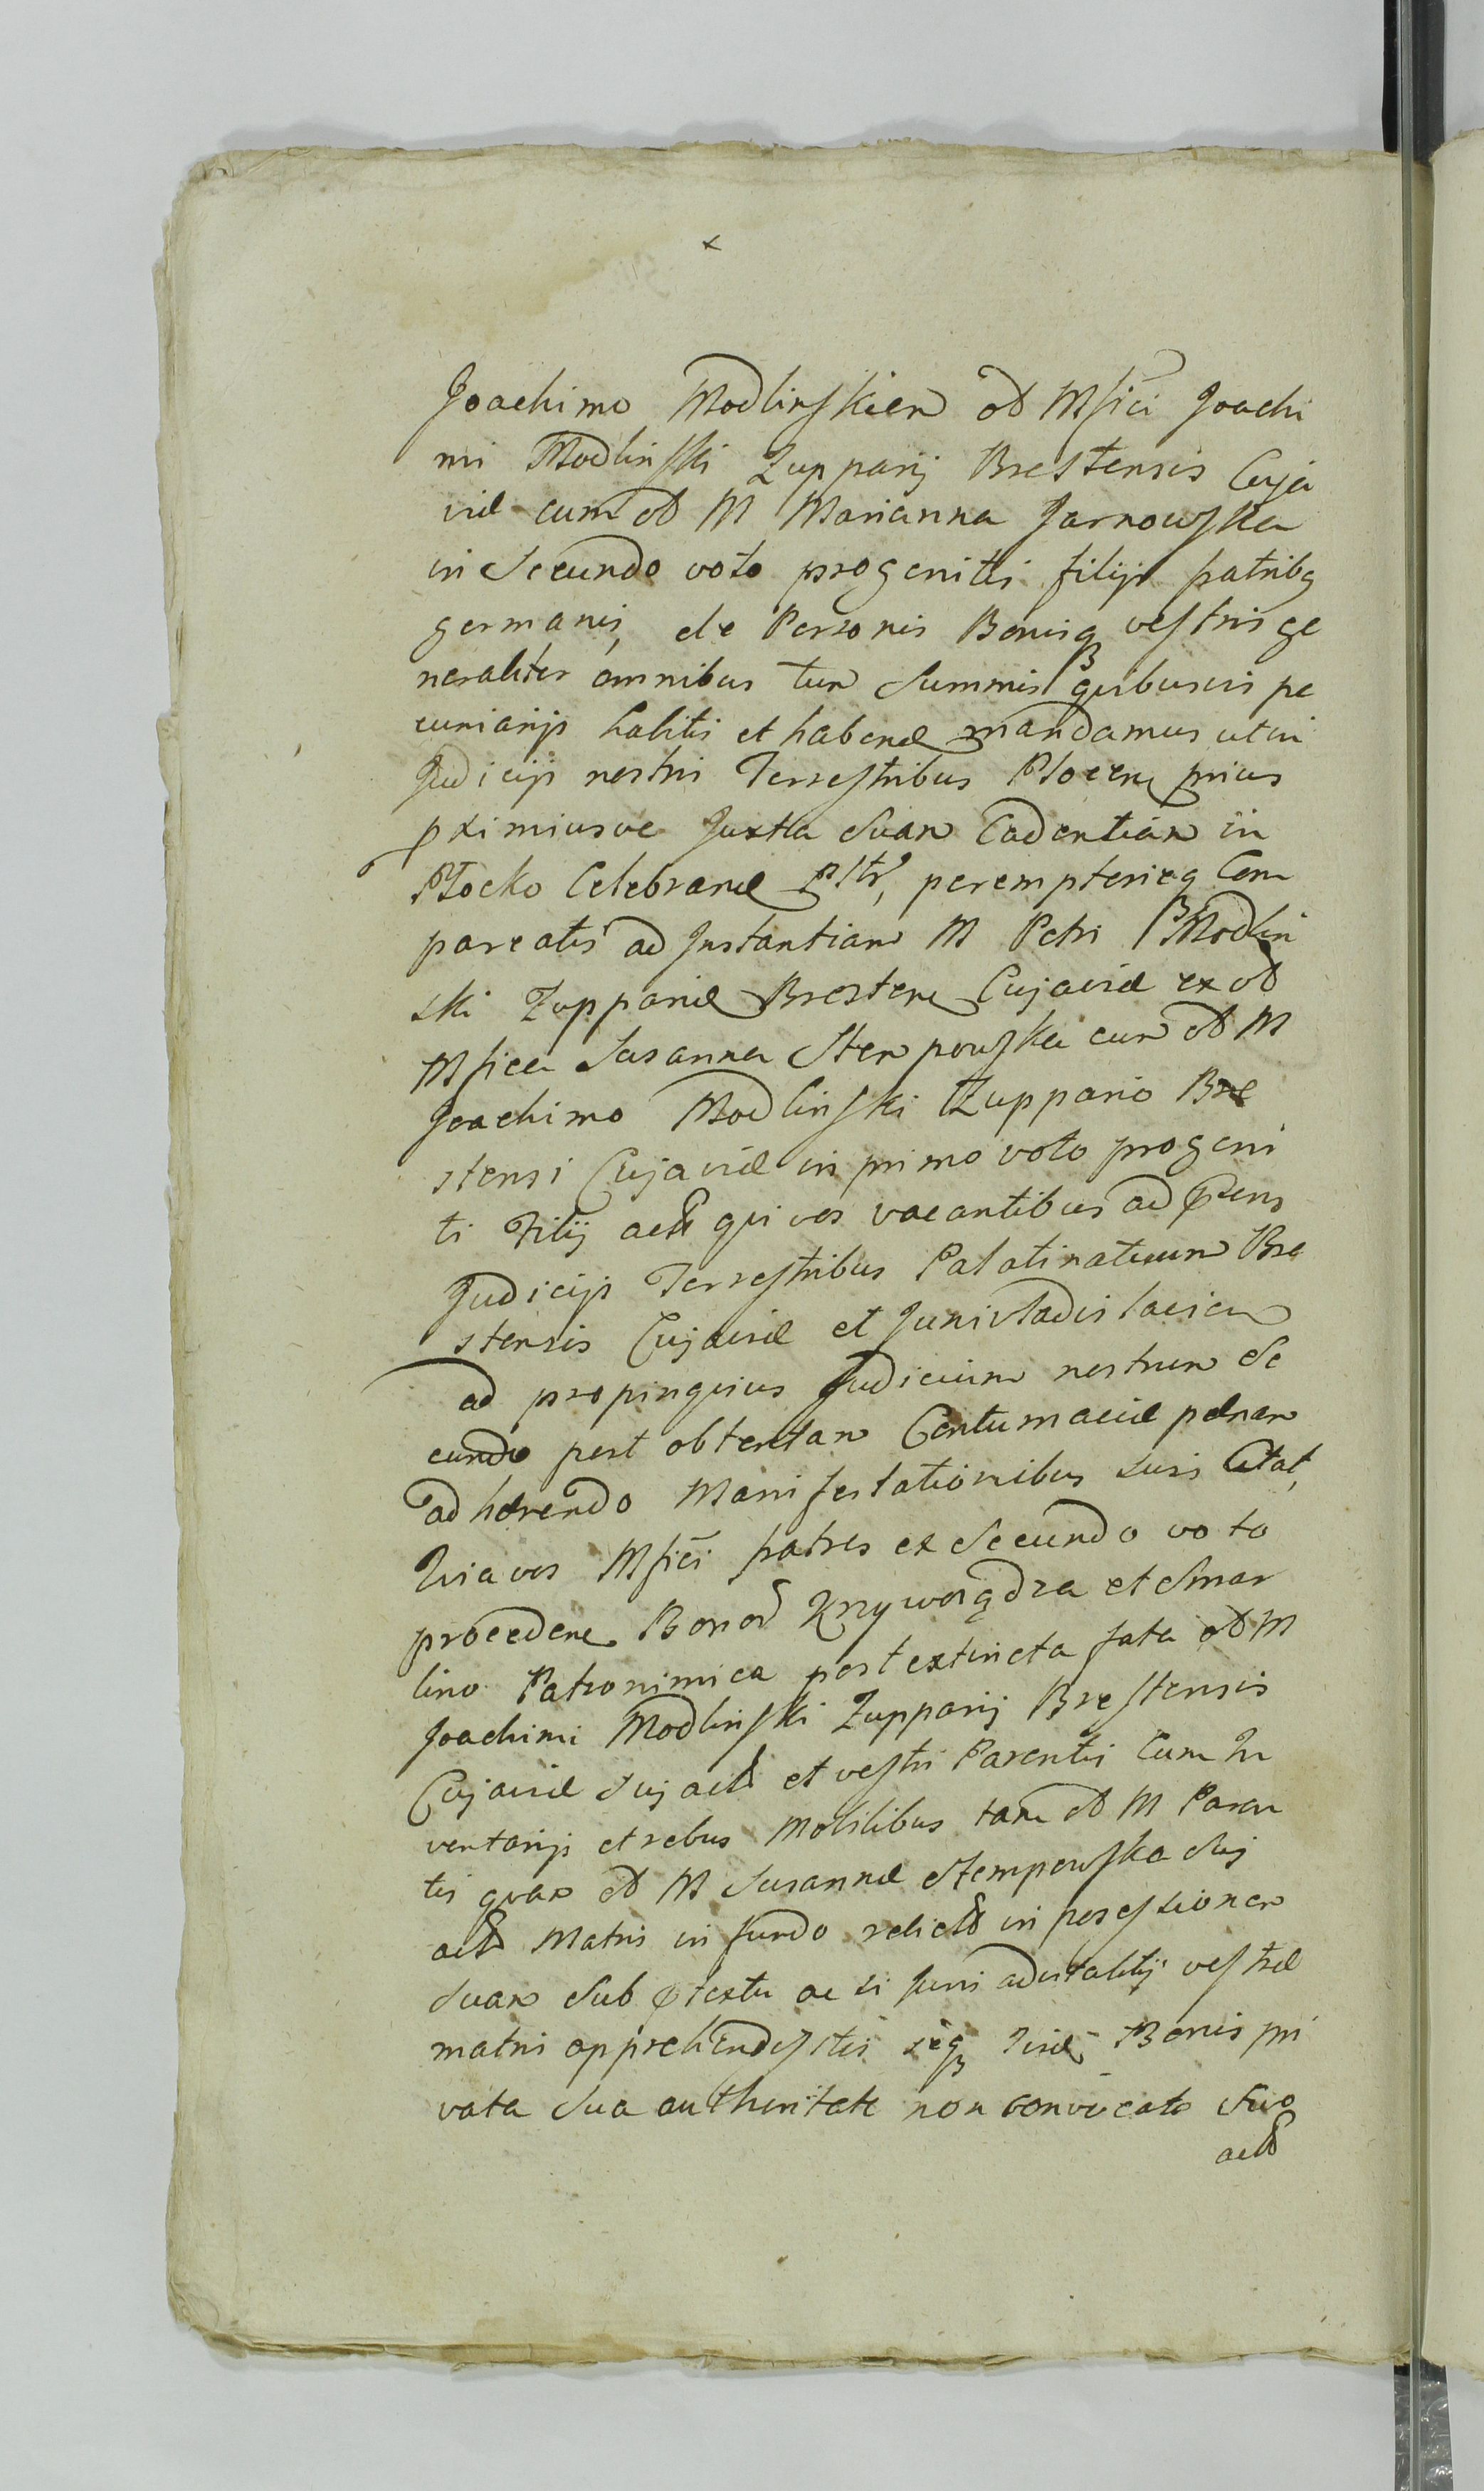 Joachimo Modlinskiem od Mfici Joachi
mi Modlinski Zupparij Brestensis Cuja
viæ cum od M Marianna Jarnowska
in Secundo voto progenitis filijs fratribq
germanis, de Personis Bonisq vestris ge
neraliter omnibus tum Summis quibusvis pe
cuniarijs habitis et habend mandamus ut in
Judicijs nostris Terrestribus Plocen prius
pximiusve Juxta Suam Cadentiam in
Plocko Celebrand Pltr, perempterieq Com
pareatis ad Instantiam M Petri Modlin
ski Zupparid Bresten Cujaviæ ex od
Mfica Susanna Stempowska cum od M
Joachimo Modlinski Zuppario Bre
stensi Cujaviæ in primo voto progeni
ti Filij actt qui vos vacantibus ad psens
Judicijs Terrestribus Palatinatuum Bre
stensis Cujaviæ et Junivladislavien
ad propinquius Judicium nostrum Se
cundo post obtentam Contumaciæ pænam
adhærendo Manifestationibus suis Citat,
Quia vos Mfici fratres ex Secundo voto
procedene Bonor Krzyworądza et Smar
lino Patronimica post extincta fata od M
Joachimi Modlinski Zupparij Brestensis
Cujaviæ Suj actt et vestri Parentis Cum In
ventarijs et rebus Mobilibus tam od M Paren
tis quam od M Susannæ Stempowska Suj
actt Matris in fundo relictt in possessionem
Suam Sub ptextu ac si Juris advitalitij vestræ
matris apprehendistis seq Bonis pri
vata Sua authoritate non convocato Suo
actt